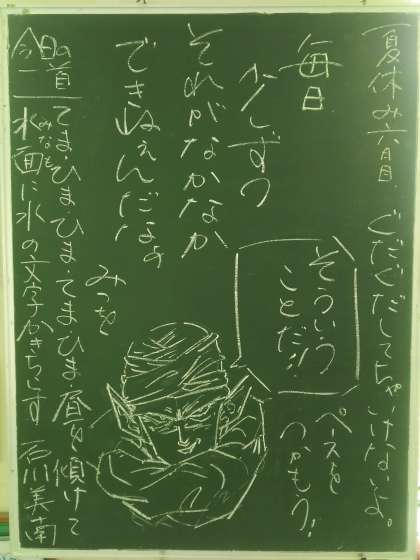 夏休み六日目.
ぐだぐだしてちゃいけないよ。
ペースを
つかもう!
毎日
少しずつ
それがなかなか
できねぇんだなぁ
みつを
そういう
ことだ!!
今日の一首
てま・ひま・ひま・てま・ひま・昼を傾けて
水面に水の文字かきちらす 石川美南
みなも